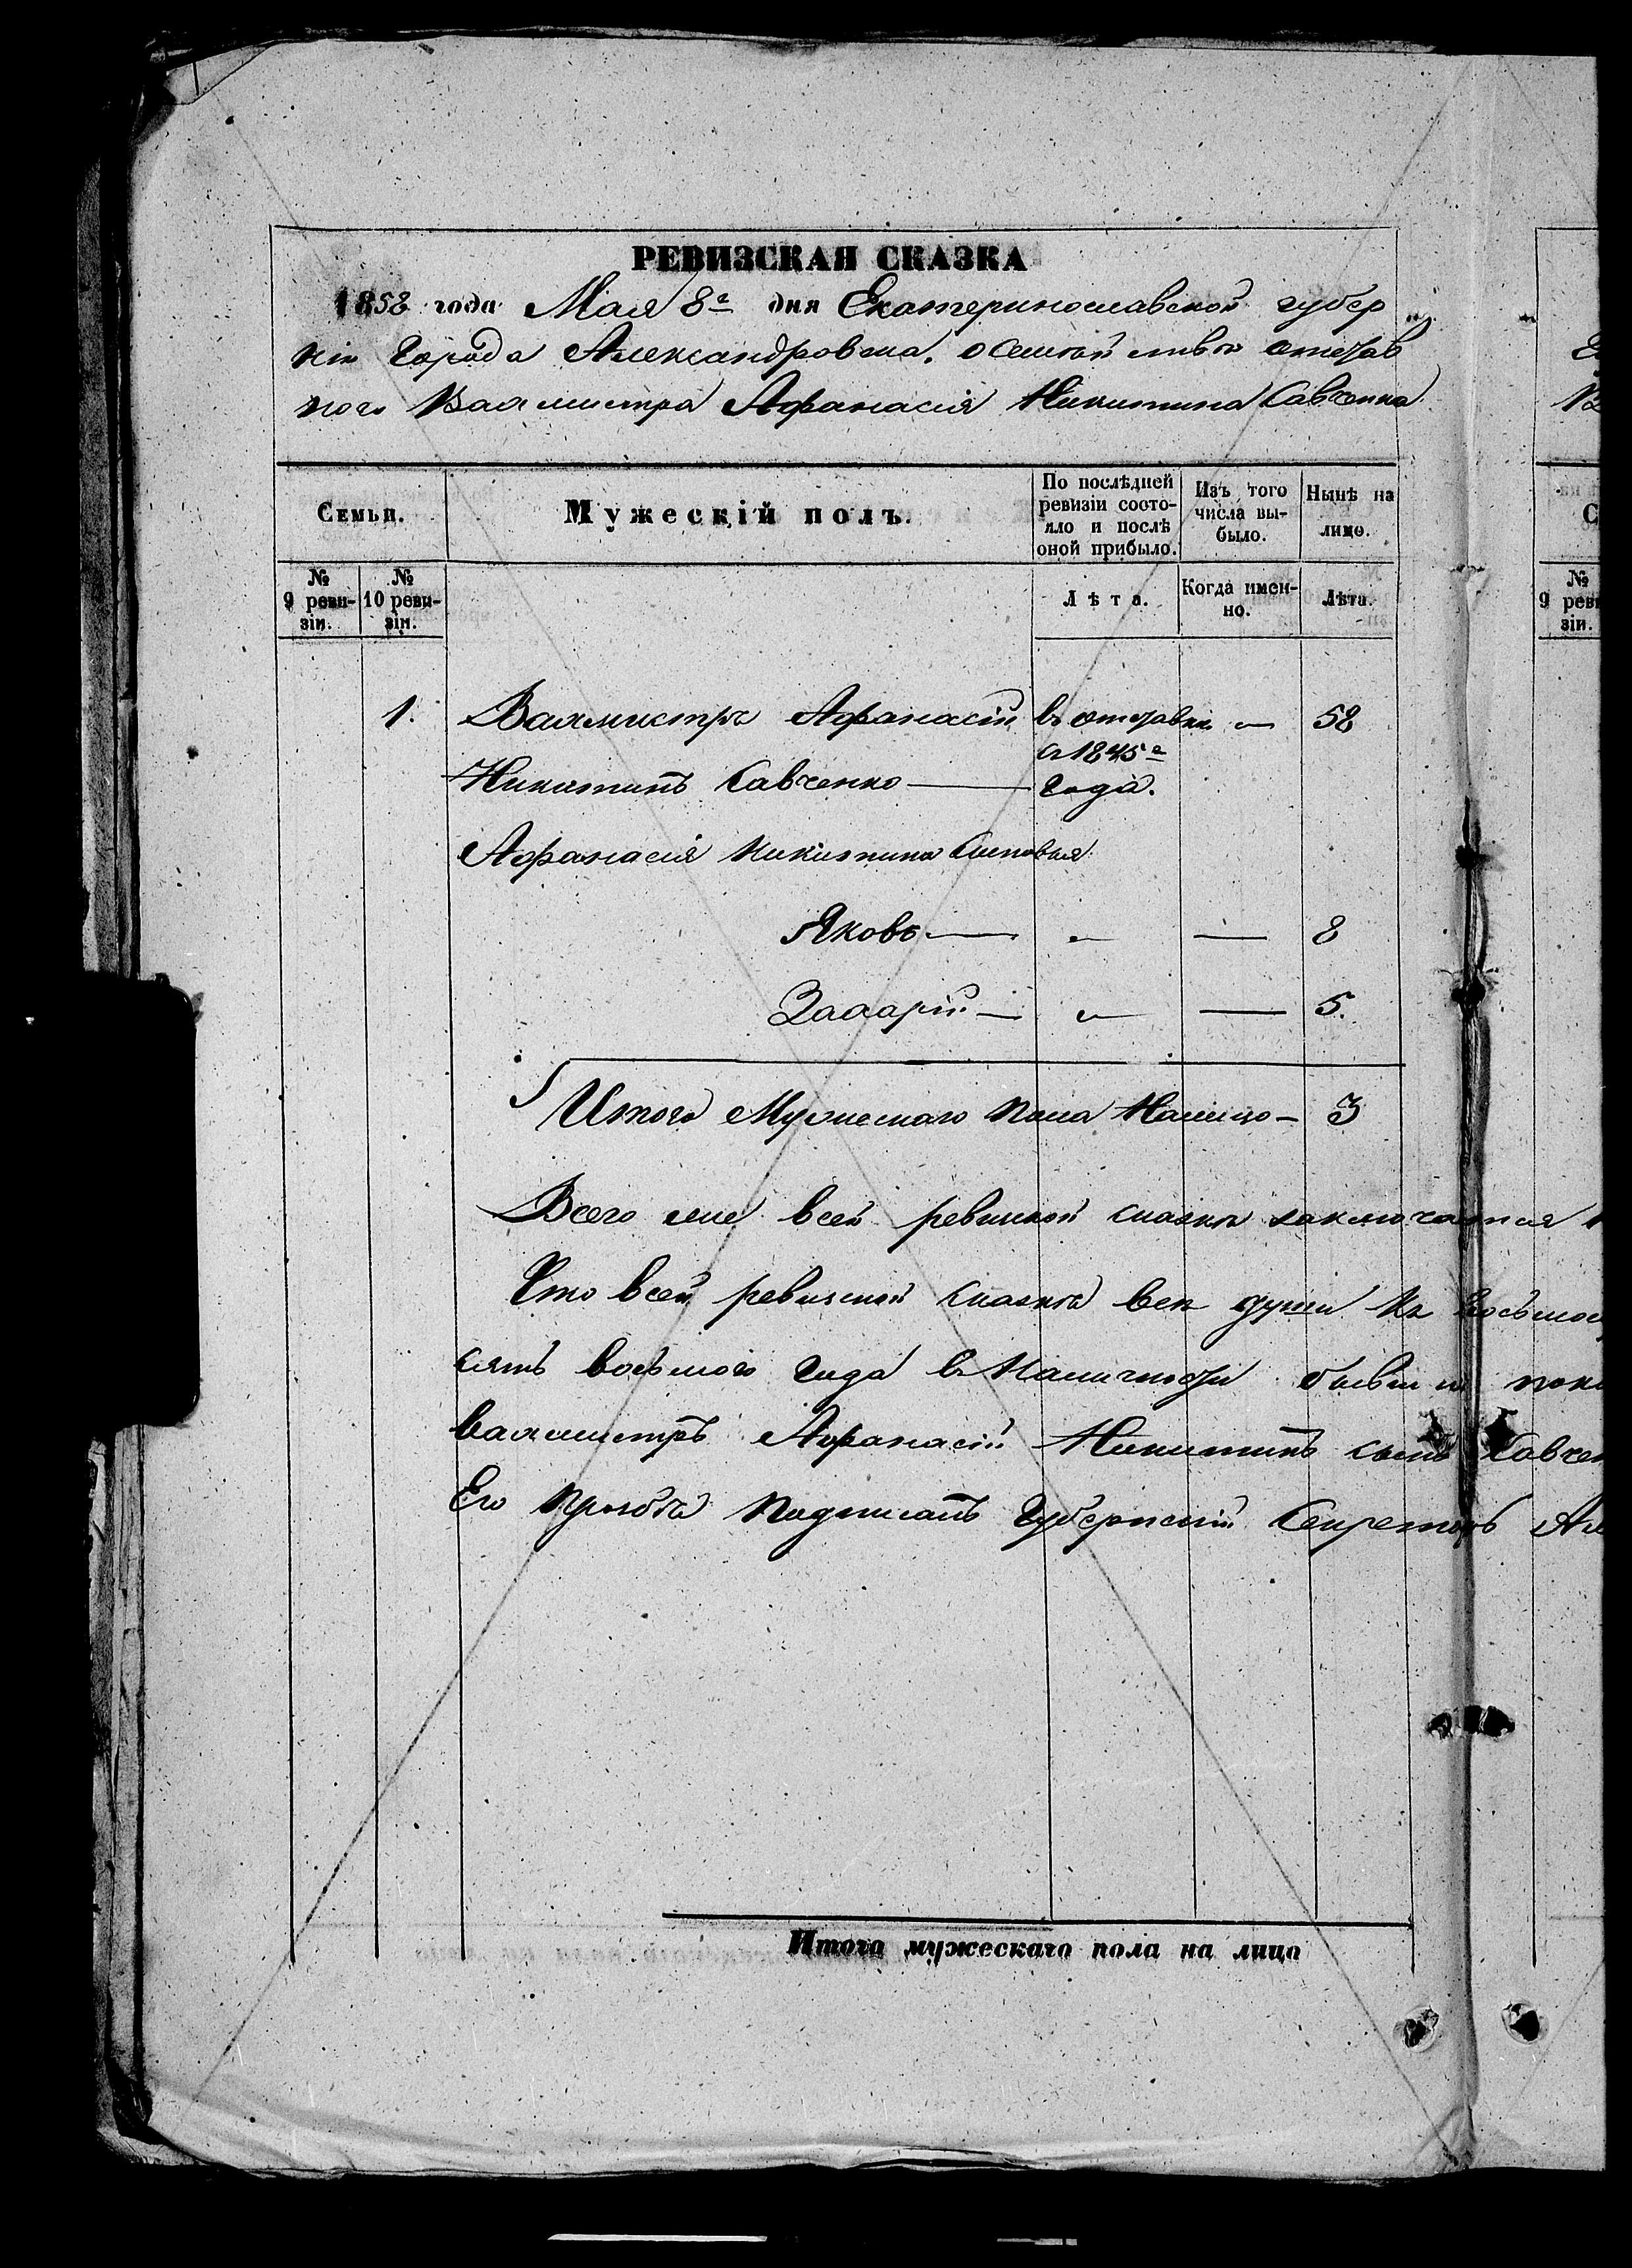 РЕВИЗСКАЯ СКАЗКА
1858 года Мая 8го дня Екатеринославской губер
ніи Города Александровска, о отстав
ного Вахмистра Афанасія Никитина Савченка
Семьи.
Мужескій полъ.
По послѣдней ревизіи состояло и послѣ оной прибыло.
Изъ того числа выбыло.
Нынѣ на лицо.
№ 9 ревизіи.
№ 10 ревизіи.
Лѣта.
Когда именно.
Лѣта.
1. Вахмистръ Афанасій въ отставке — 58
с 1845го
Никитинъ Савченко — Года.
Афанасія Никитина Сыновья
Яковъ — — — 8
Захарій — — — 5.
Итого Мужескаго пола На лицо — 3
Всего въ сей ревизкой сказкѣ заключается
Что в сей ревизской сказкѣ все души къ
сятъ восьмого Года в Наличности бывши
вахмистръ Афанасій Никитинъ сынъ Савчен
Его прозбѣ подписалъ Губернскій Секретарь
Итого мужескаго пола на лицо
№ 9 реви
зіи.